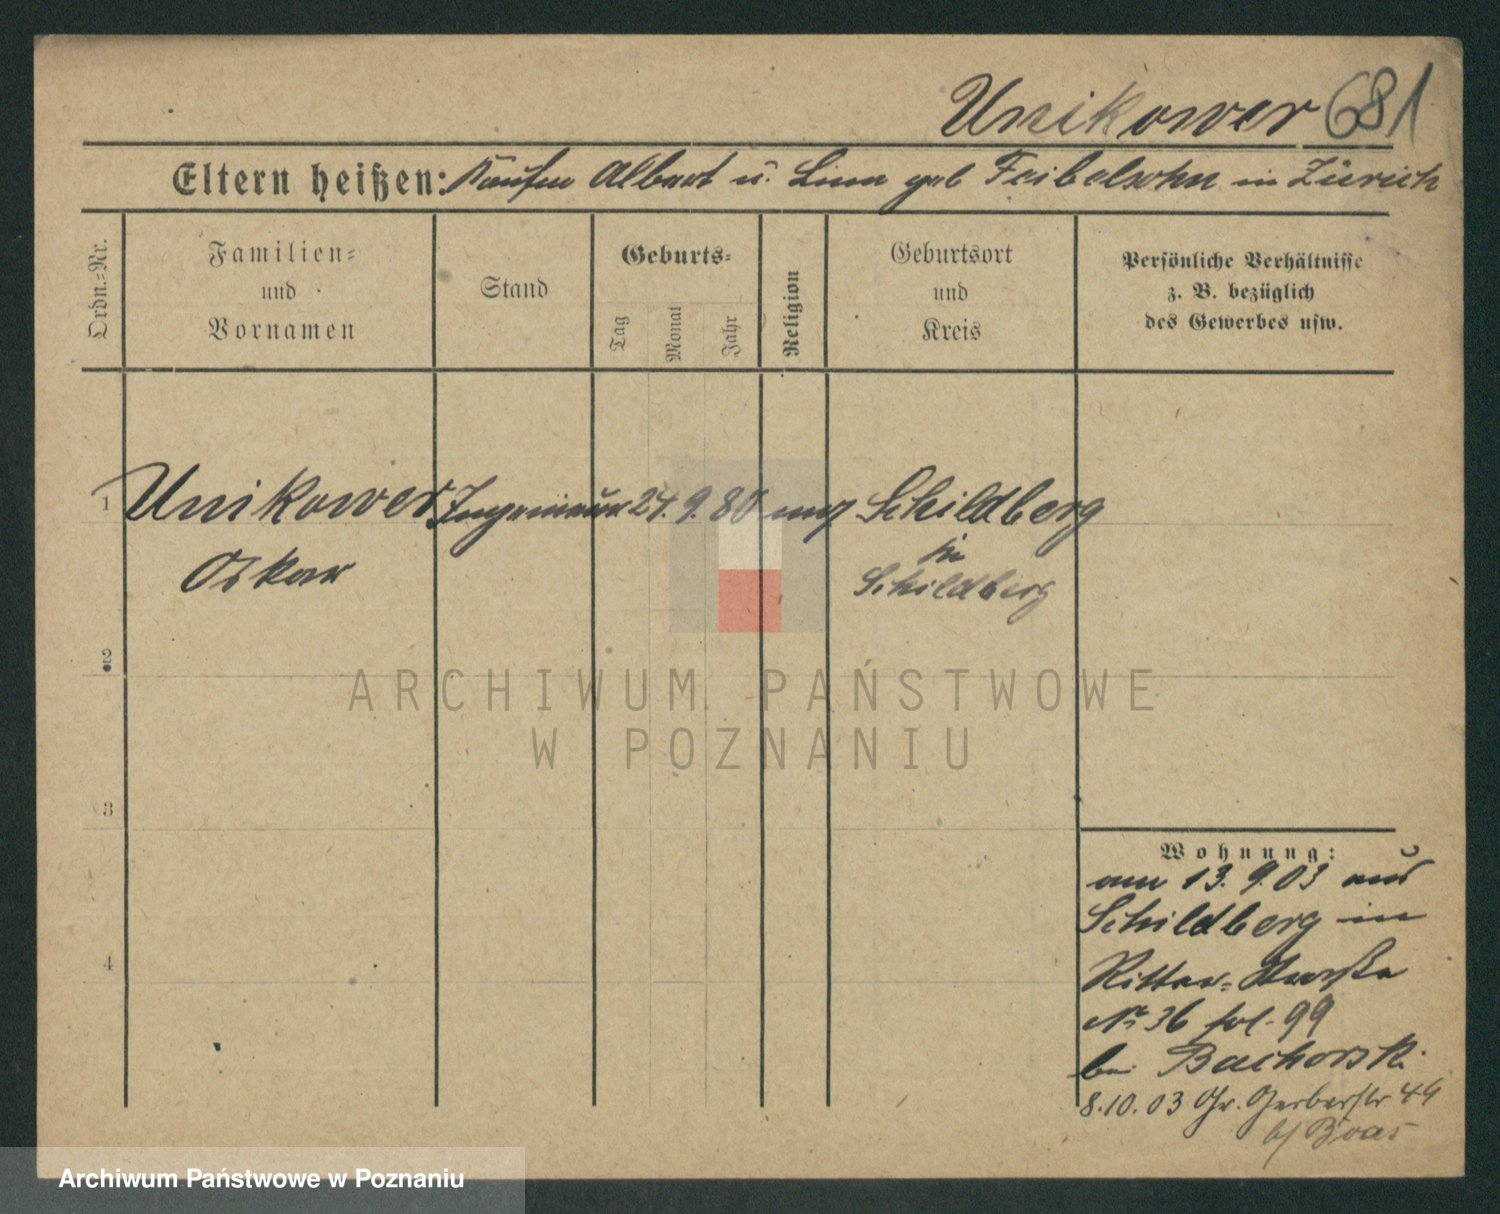 Unikower 681
Eltern heißen: Kaufm Albert u. Lina geb Feibelsohn in Zürich
Ordn.-Nr.
Familien-
und
Vornamen
Stand
Geburts-
Tag
Monat
Jahr
Religion
Geburtsort
und
Kreis
Persönliche Verhältnisse
z. B. bezüglich
des Gewerbes usw.
1 Unikower Ingenieur 24. 9. 80 mos Schildberg
Oskar
in
Schildberg
2
3
4
ARCHIWUM PAŃSTWOWE
W POZNANIU
Wohnung:
am 13. 9. 03 aus
Schildberg in
Ritter-Straße
No 36 fol. 99
bei Bachorski.
8.10.03 Gr. Gerberstr 49
b/ Boas
Archiwum Państwowe w Poznaniu